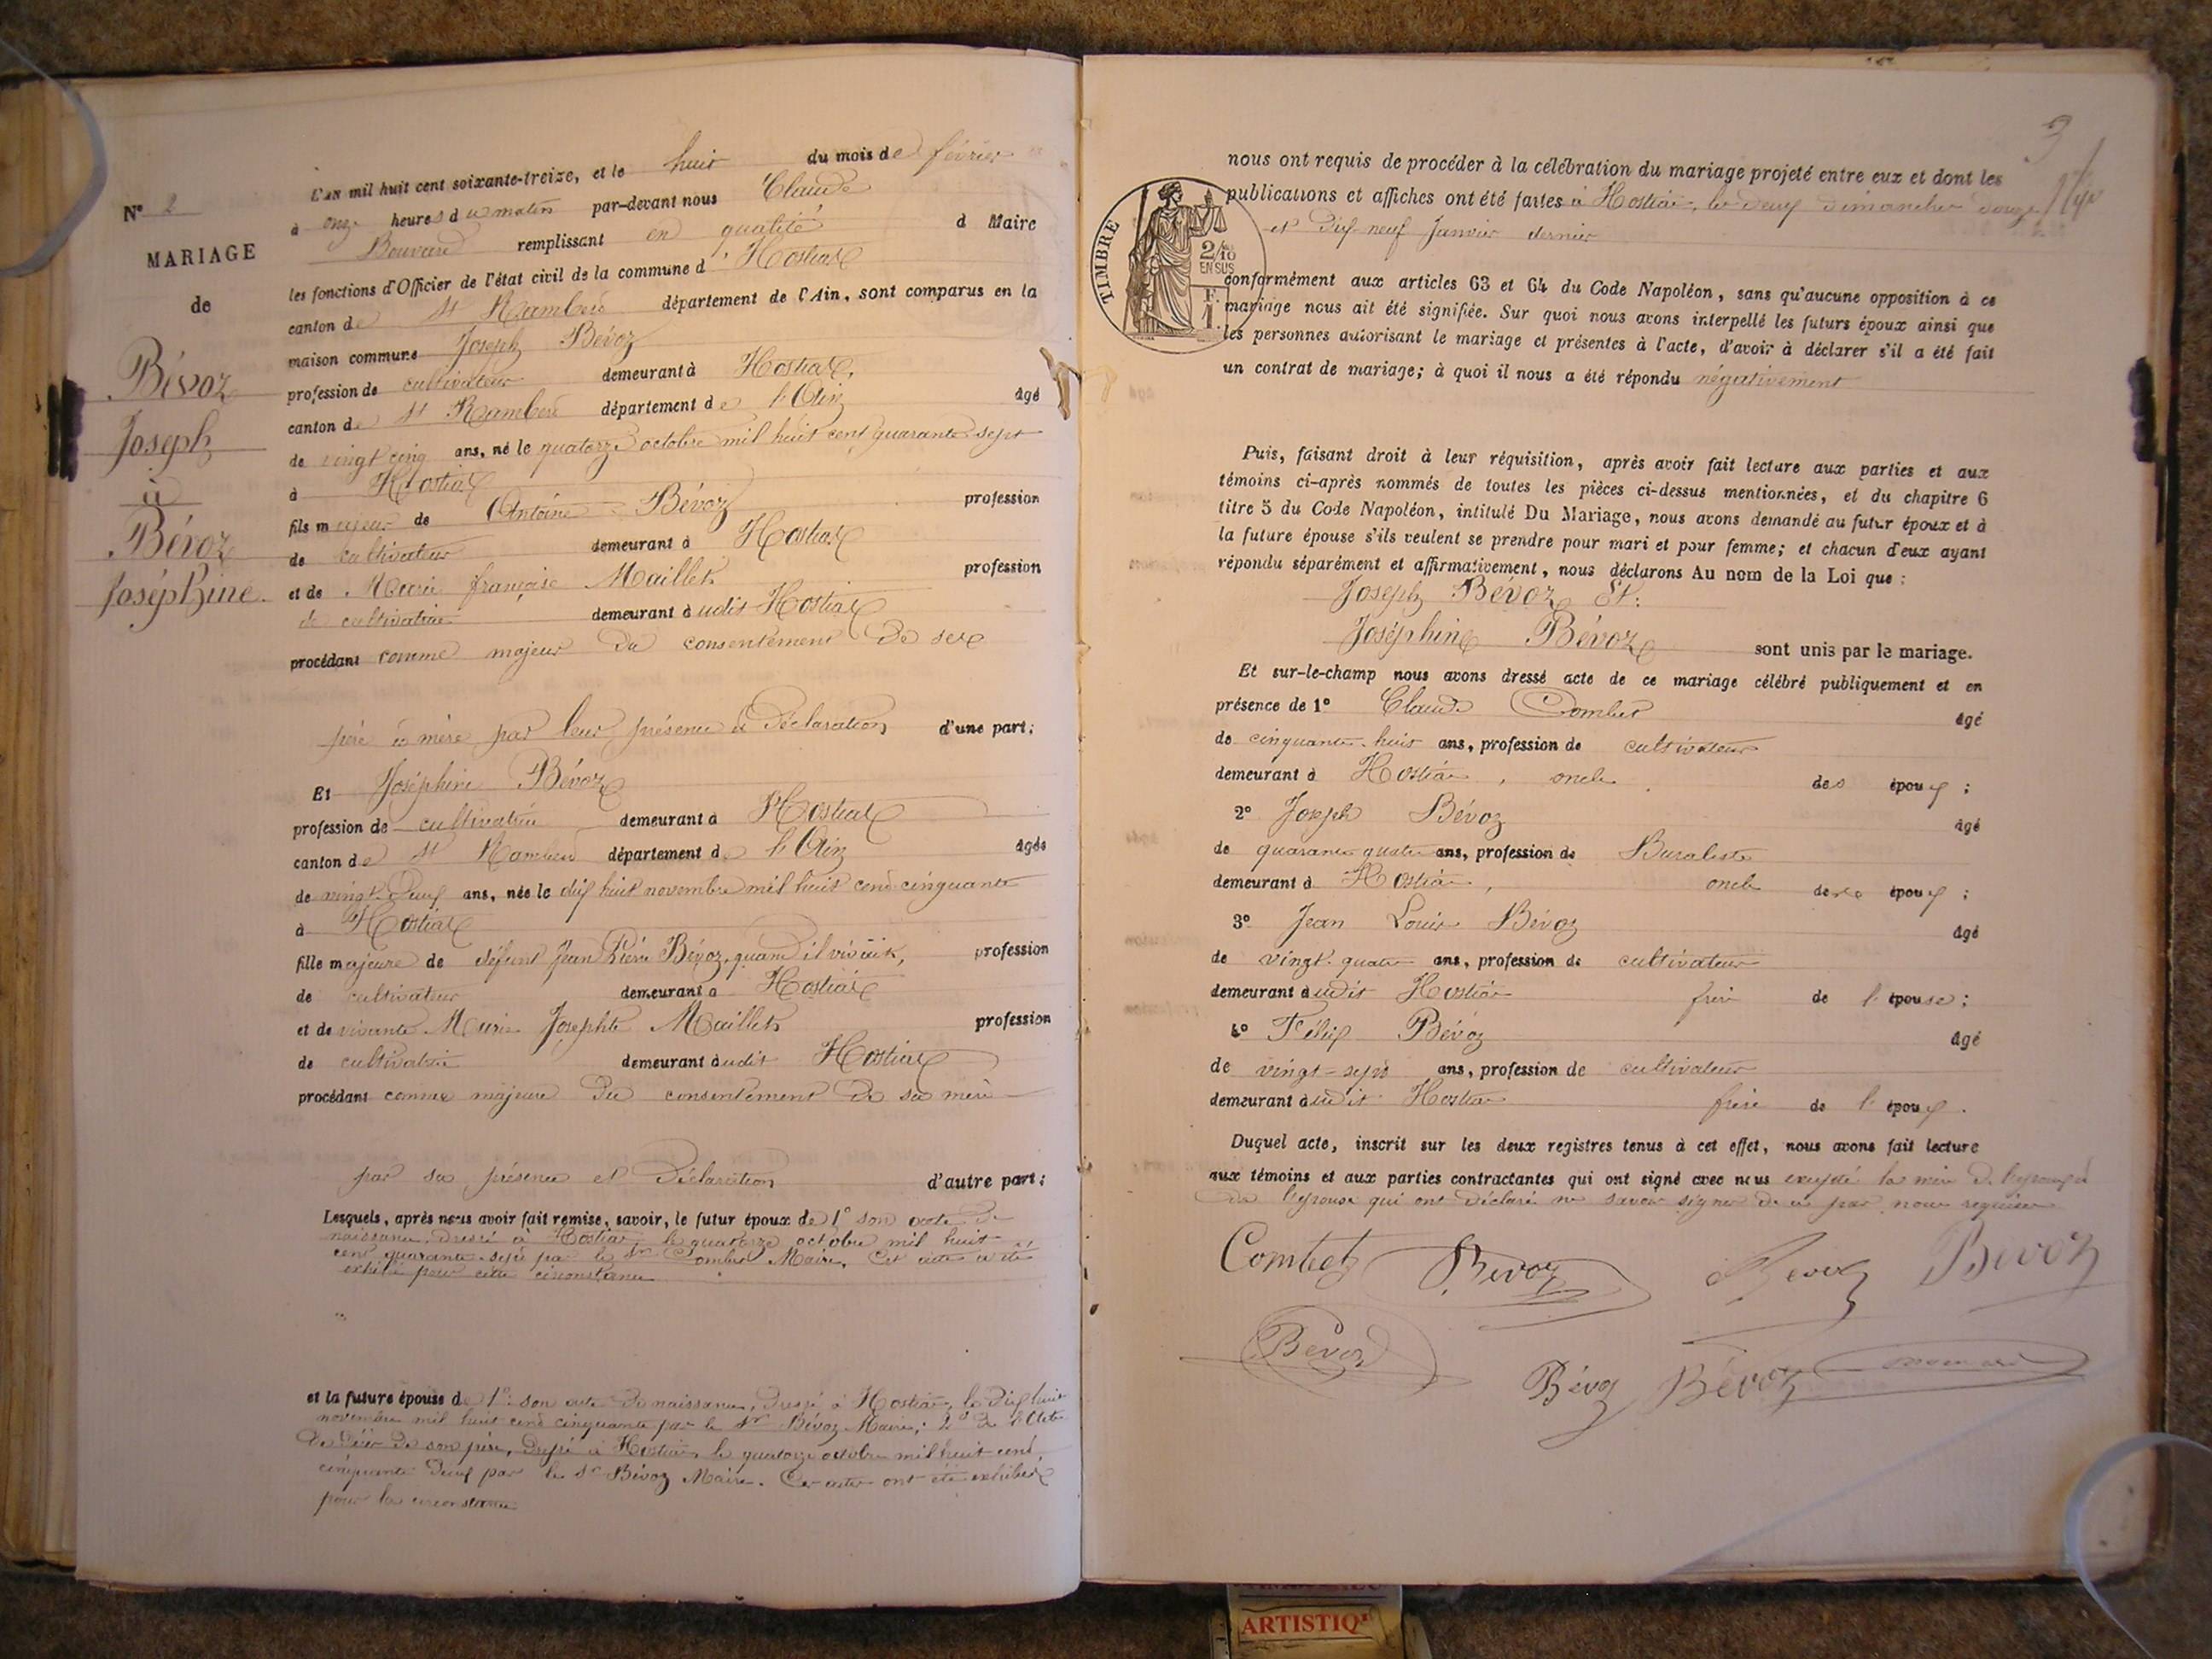 N° 2
MARIAGE
de
Bévoz
Joseph
à
Bévoz
Joséphine
L'AN mil huit cent soixante-treize, et le huit du mois de février
à onze heures du matin par-devant nous Claude
Bouvard remplissant en qualité d Maire
les fonctions d'Officier de l'état civil de la commune d'Hostiax
canton de St Rambert département de l'Ain, sont comparus en la
maison commune Joseph Bévoz
profession de cultivateur demeurant à Hostiax,
canton de St Rambert département de l'Ain âgé
de vingt cinq ans, né le quatorze octobre mil huit cent quarante sept
à Hostiax
fils majeur de Antoine Bévoz profession
de cultivateur demeurant à Hostiax
et de Marie françoise Maillet profession
de cultivatrice demeurant à udit Hostiax
procédant comme majeur du consentement de ses
père et mère par leur présence et déclaration d'une part;
Et Joséphine Bévoz
profession de cultivatrice demeurant à Hostiax
canton de St Rambert département de l'Ain âgée
de vingt-deux ans, née le dix huit novembre mil huit cent cinquante
à Hostiax
fille majeure de défunt Jean Pierre Bévoz, quand il vivait, profession
de cultivateur demeurant à Hostiax
et de vivante Marie Josephte Maillet profession
de cultivatrice demeurant à udit Hostiax
procédant comme majeure du consentement de sa mère
par sa présence et déclaration d'autre part;
Lesquels, après nous avoir fait remise, savoir, le futur époux de 1° son acte de
naissance, dressé à Hostiax le quatorze octobre mil huit
cent quarante-sept par le Sr Combet Maire, Cet acte a été
exhibé pour cette circonstance
et la future épouse de 1° son acte de naissance, dressé à Hostiax, le dix huit
novembre mil huit cent cinquante par le Sr Bévoz Maire; 2° de l'Acte
de décès de son père, dressé à Hostiax, le quatorze octobre mil huit cent
cinquante deux par le Sr Bévoz Maire. Ces actes ont été exhibés
pour la circonstance
3
nous ont requis de procéder à la célébration du mariage projeté entre eux et dont les
publications et affiches ont été faites à Hostiax, les deux dimanches douze
et dix-neuf Janvier dernier
TIMBRE
2/10
EN SUS
F.
1.
conformément aux articles 63 et 64 du Code Napoléon, sans qu'aucune opposition à ce
mariage nous ait été signifiée. Sur quoi nous avons interpellé les futurs époux ainsi que
les personnes autorisant le mariage et présentes à l'acte, d'avoir à déclarer s'il a été fait
un contrat de mariage; à quoi il nous a été répondu négativement
Puis, faisant droit à leur réquisition, après avoir fait lecture aux parties et aux
témoins ci-après nommés de toutes les pièces ci-dessus mentionnées, et du chapitre 6
titre 5 du Code Napoléon, intitulé Du Mariage, nous avons demandé au futur époux et à
la future épouse s'ils veulent se prendre pour mari et pour femme; et chacun d'eux ayant
répondu séparément et affirmativement, nous déclarons Au nom de la Loi que :
Joseph Bévoz Et:
Joséphine Bévoz sont unis par le mariage.
Et sur-le-champ nous avons dressé acte de ce mariage célébré publiquement et en
présence de 1° Claude Combet âgé
de cinquante-huit ans, profession de cultivateur
demeurant à Hostiax, oncle des époux;
2° Joseph Bévoz âgé
de quarante quatre ans, profession de Buraliste
demeurant à Hostiax, oncle des époux;
3° Jean Louis Bévoz âgé
de vingt-quatre ans, profession de cultivateur
demeurant à udit Hostiax frère de l'épouse;
4° Félix Bévoz âgé
de vingt-sept ans, profession de cultivateur
demeurant à udit Hostiax frère de l'époux.
Duquel acte, inscrit sur les deux registres tenus à cet effet, nous avons fait lecture
aux témoins et aux parties contractantes qui ont signé avec nous excepté la mère de l'époux et
de l'épouse qui ont déclaré ne savoir signer de ce par nous requises
Combet Bévoz Bévoz Bévoz
Bévoz
Bévoz Bévoz Bouvard
ARTISTIQ